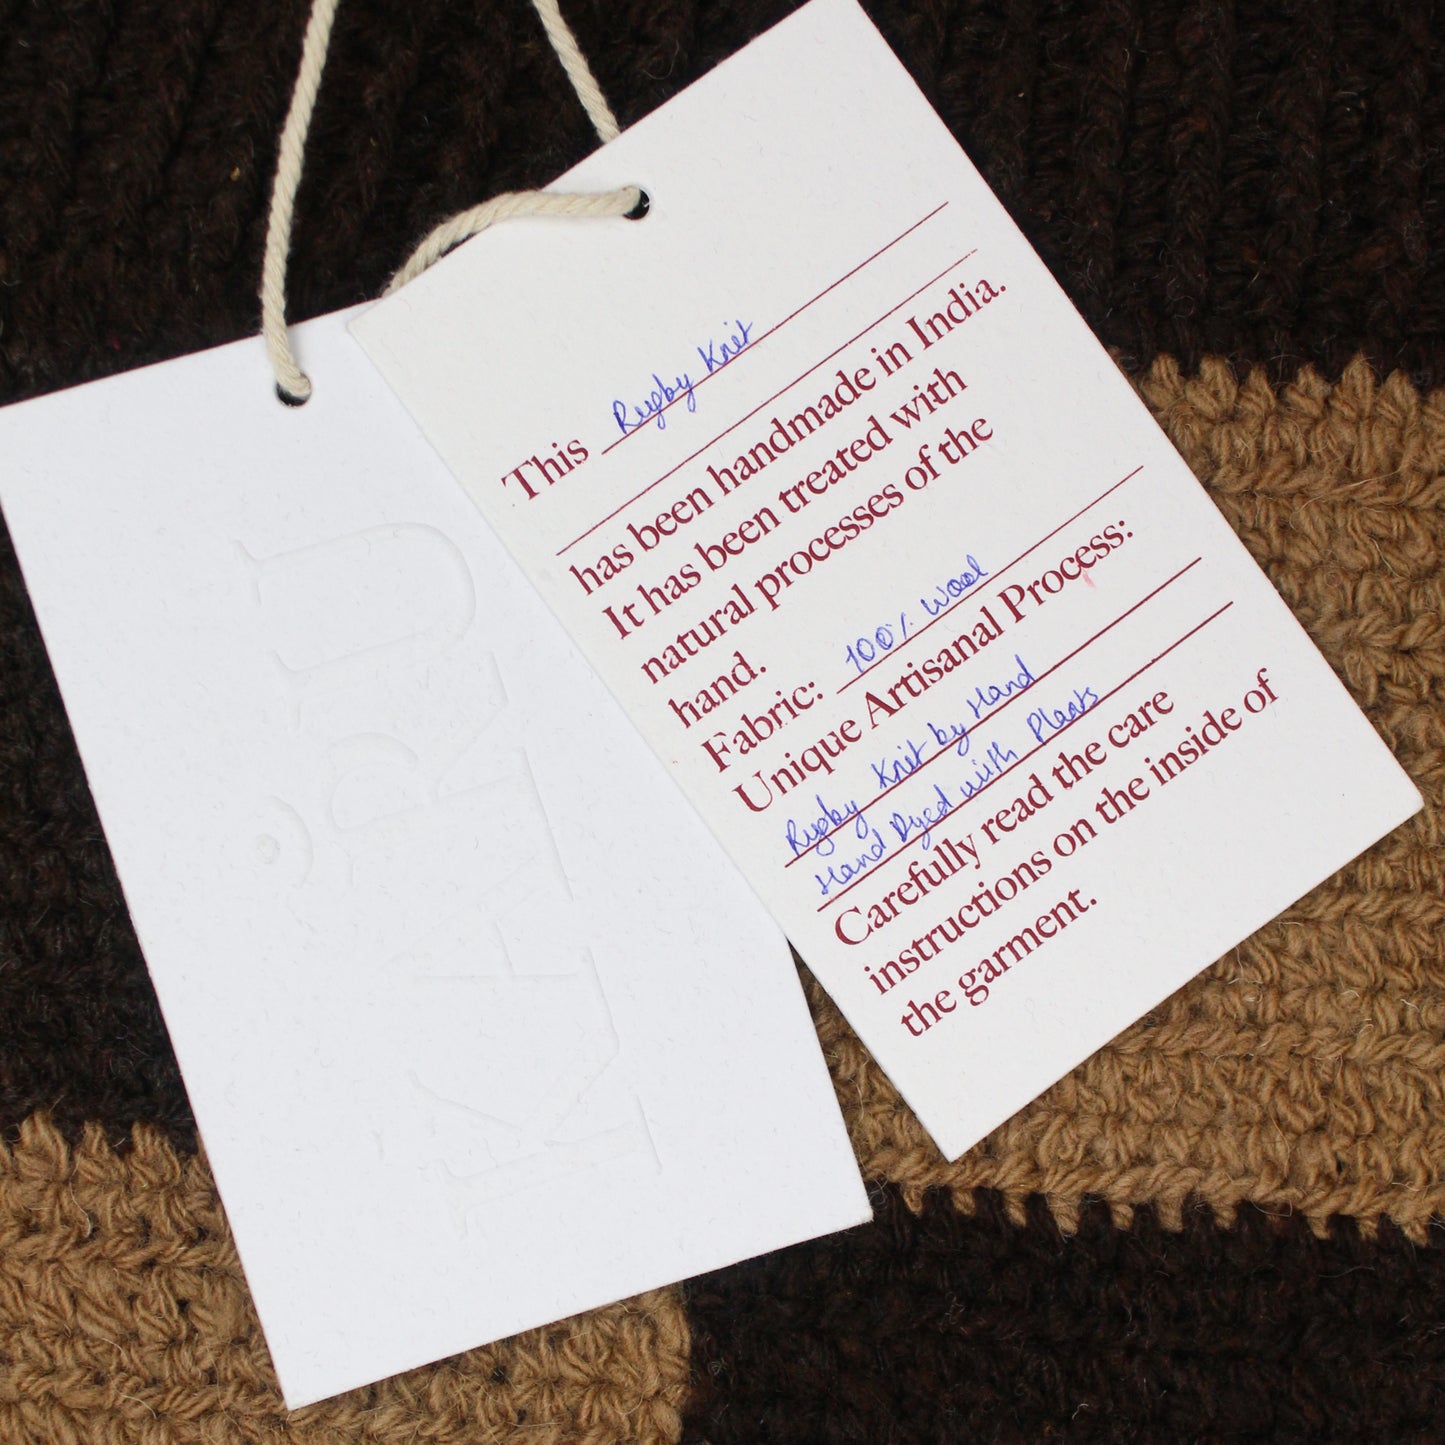 KARU
This Rugby Knit
has been handmade in India.
It has been treated with
natural processes of the
hand.
Fabric: 100% Wool
Unique Artisanal Process:
Rugby Knit by Hand
Hand Dyed with Plants
Carefully read the care
instructions on the inside of
the garment.